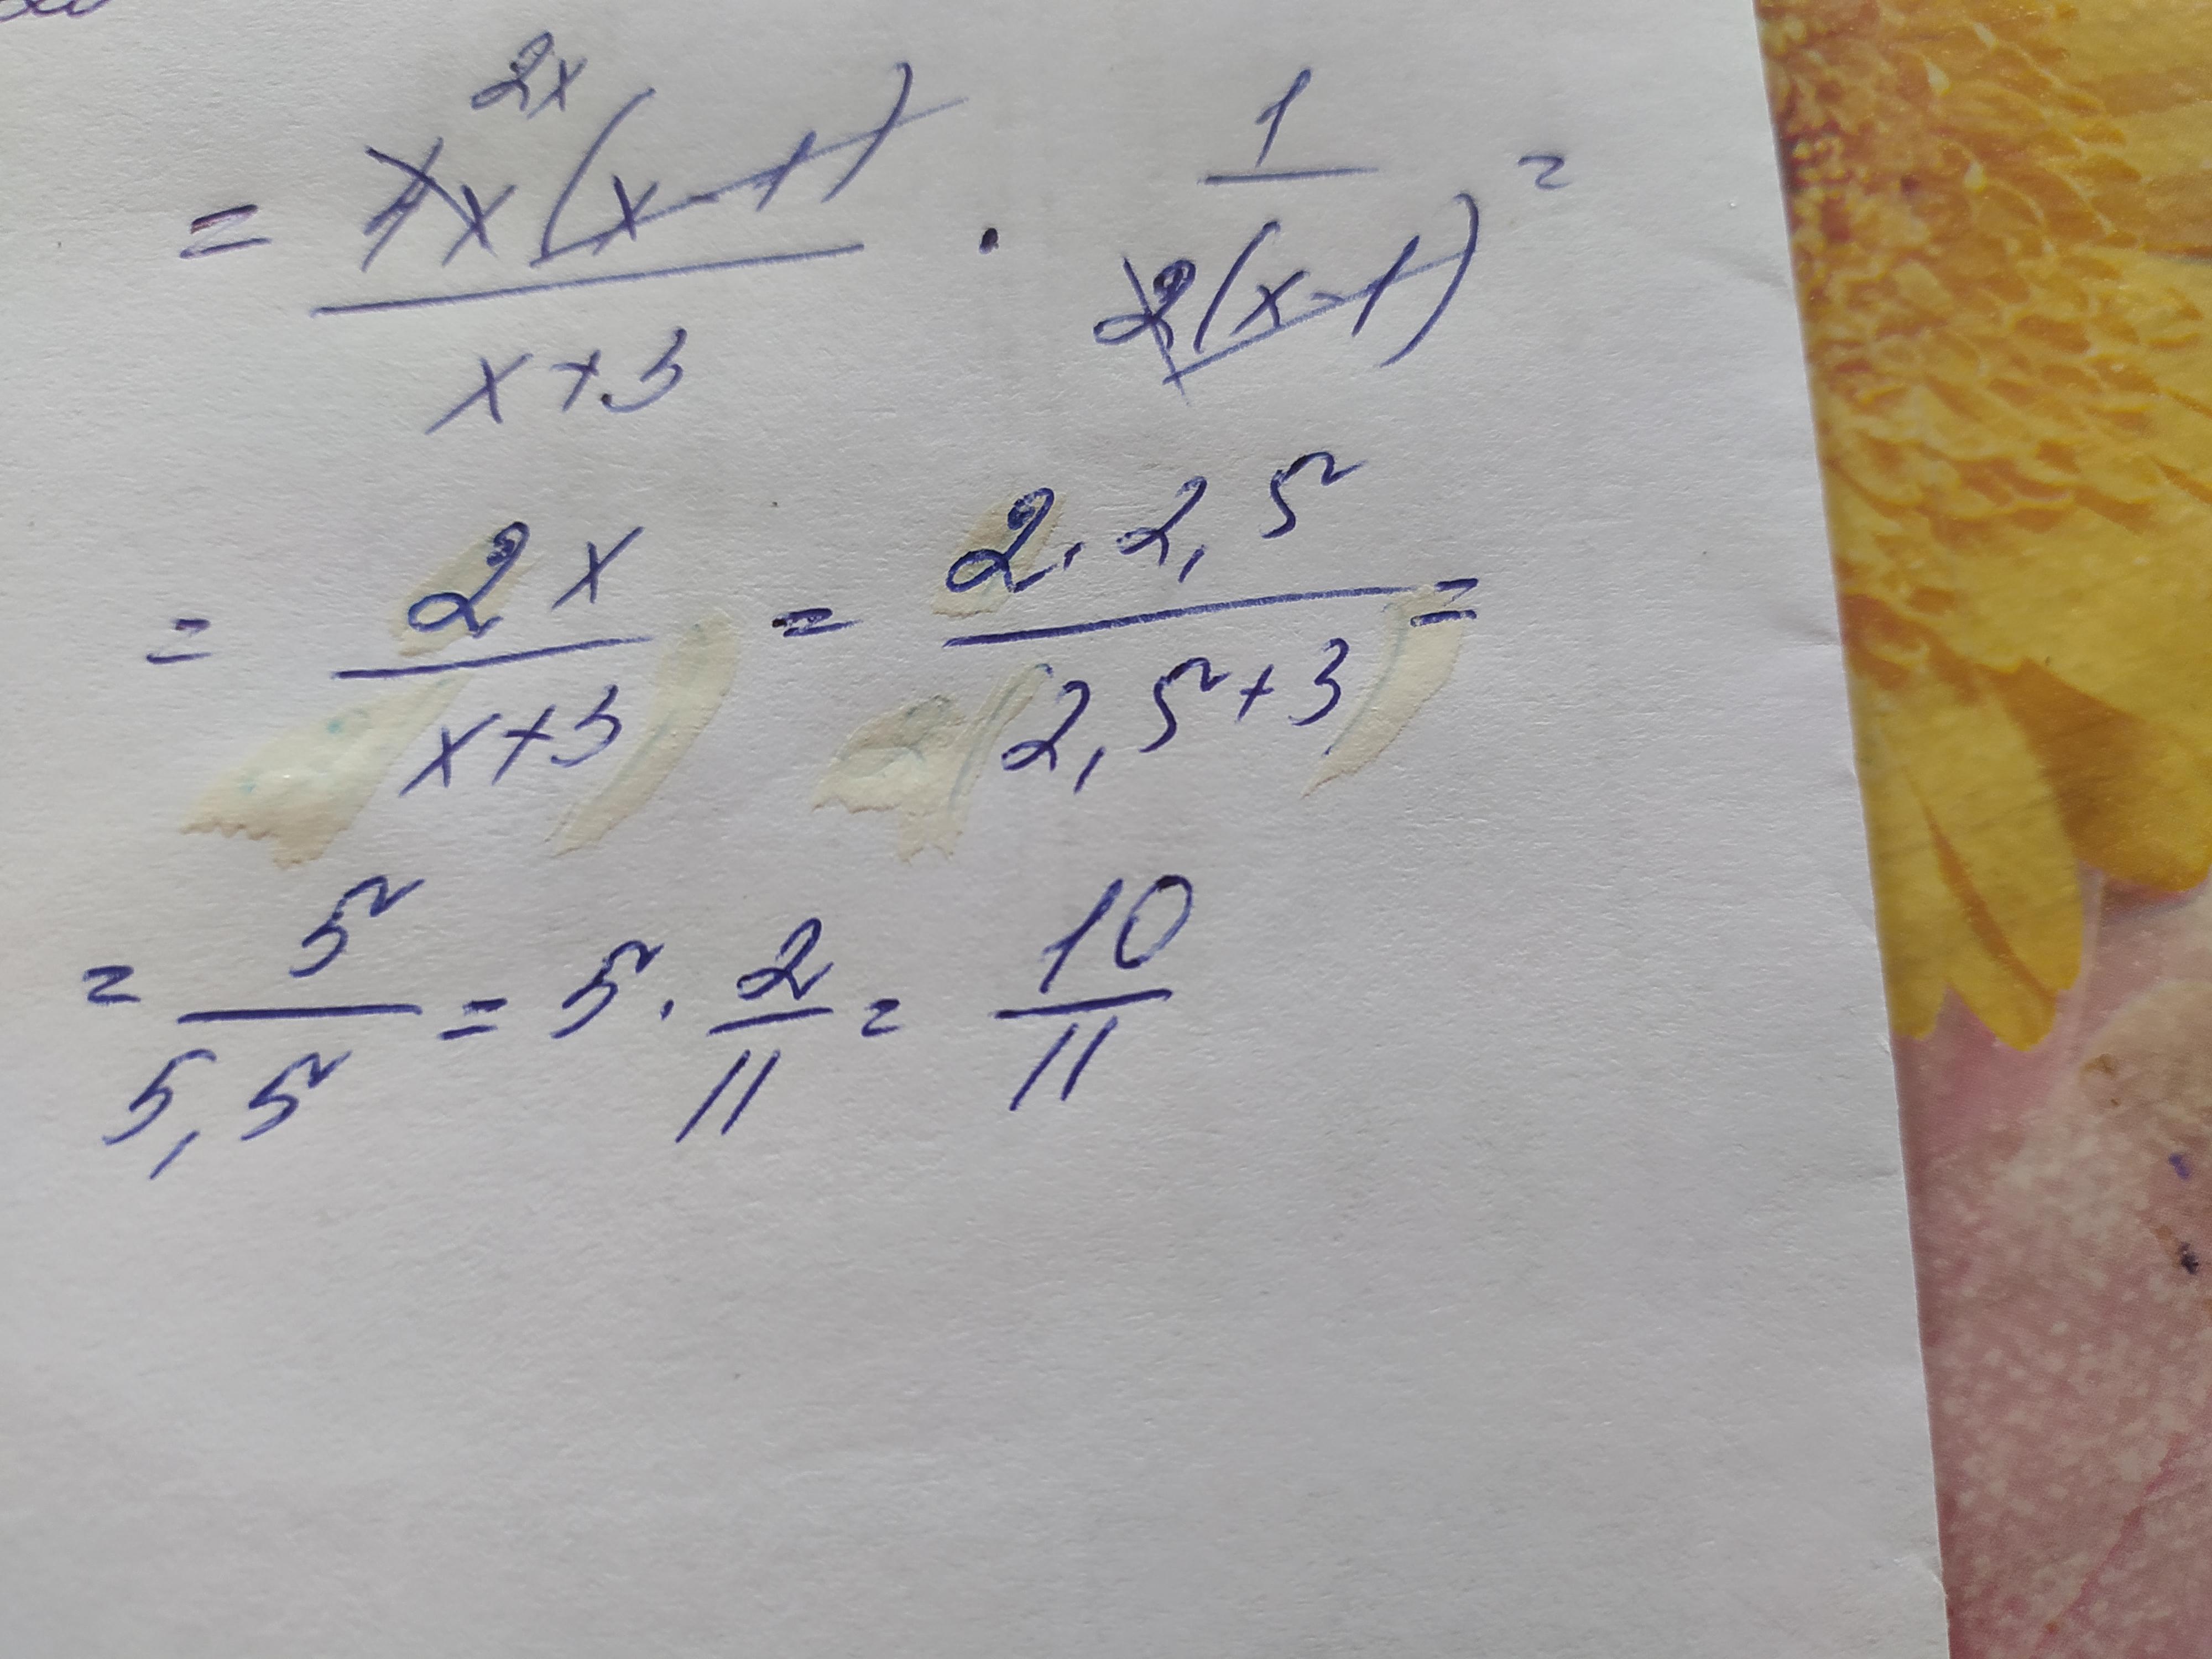 2x
= 4x(x-1)/(x+3) · 1/(2(x-1)) =
= 2x/(x+3) = 2·2,5/(2,5+3) =
= 5/5,5 = 5 · 2/11 = 10/11